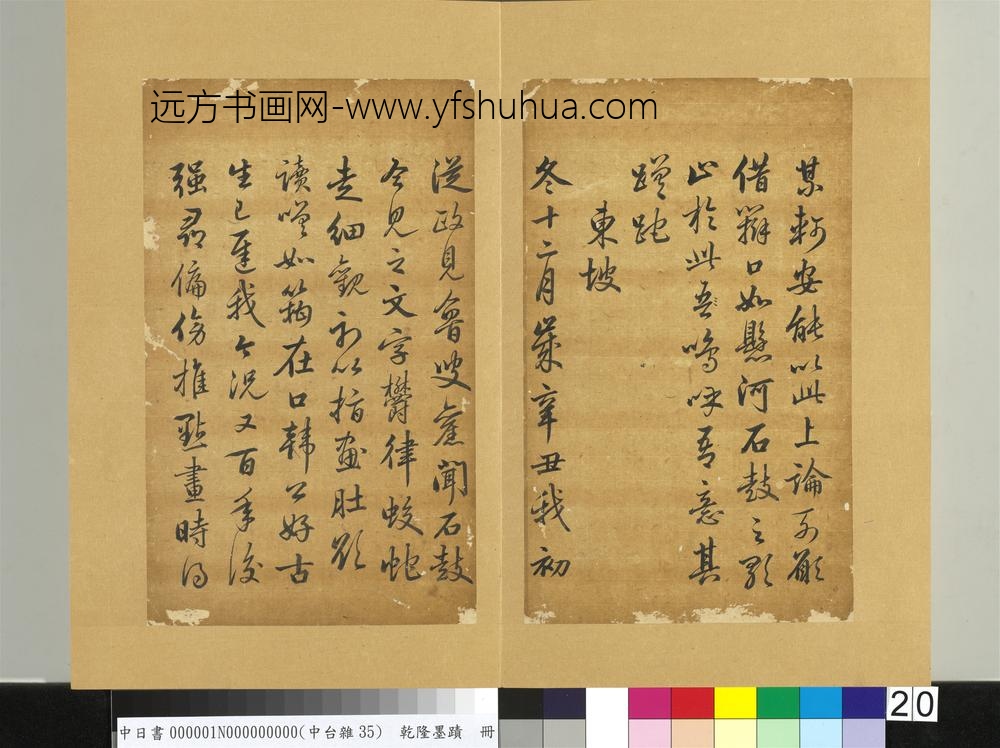 远方书画网-www.yfshuhua.com
某軻安能以此上論列願
借辯口如懸河石鼓之歌
止於此吾嗚呼吾意其
蹉跎
東坡
冬十二月歲辛丑我初
從政見魯叟舊聞石鼓
今見之文字欝律蛟蛇
走細觀初以指畫肚欲
讀嗟如箝在口韓公好古
生已遲我今況又百年後
强尋偏傍推點畫時得
20
中日書000001N000000000(中台雜35) 乾隆墨蹟 冊